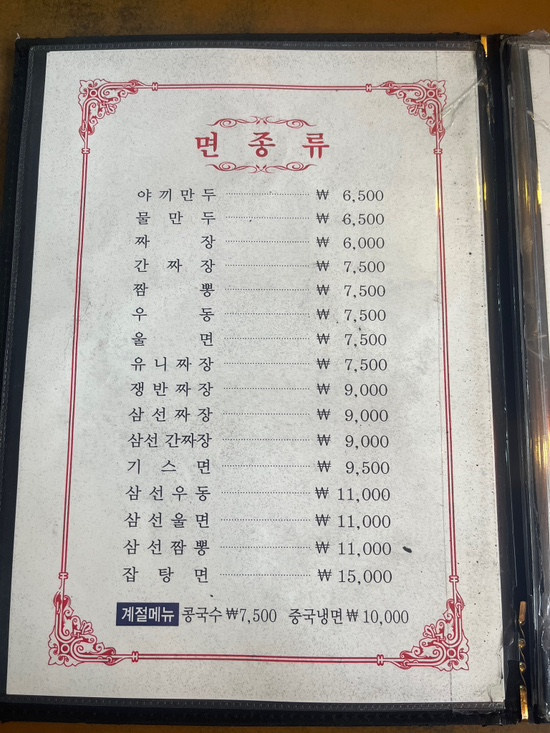 면 종 류
야끼만두 ₩ 6,500
물 만 두 ₩ 6,500
짜 장 ₩ 6,000
간 짜 장 ₩ 7,500
짬 뽕 ₩ 7,500
우 동 ₩ 7,500
울 면 ₩ 7,500
유니짜장 ₩ 7,500
쟁반짜장 ₩ 9,000
삼선짜장 ₩ 9,000
삼선간짜장 ₩ 9,000
기 스 면 ₩ 9,500
삼선우동 ₩ 11,000
삼선울면 ₩ 11,000
삼선짬뽕 ₩ 11,000
잡 탕 면 ₩ 15,000
계절메뉴 콩국수 ₩7,500 중국냉면 ₩ 10,000